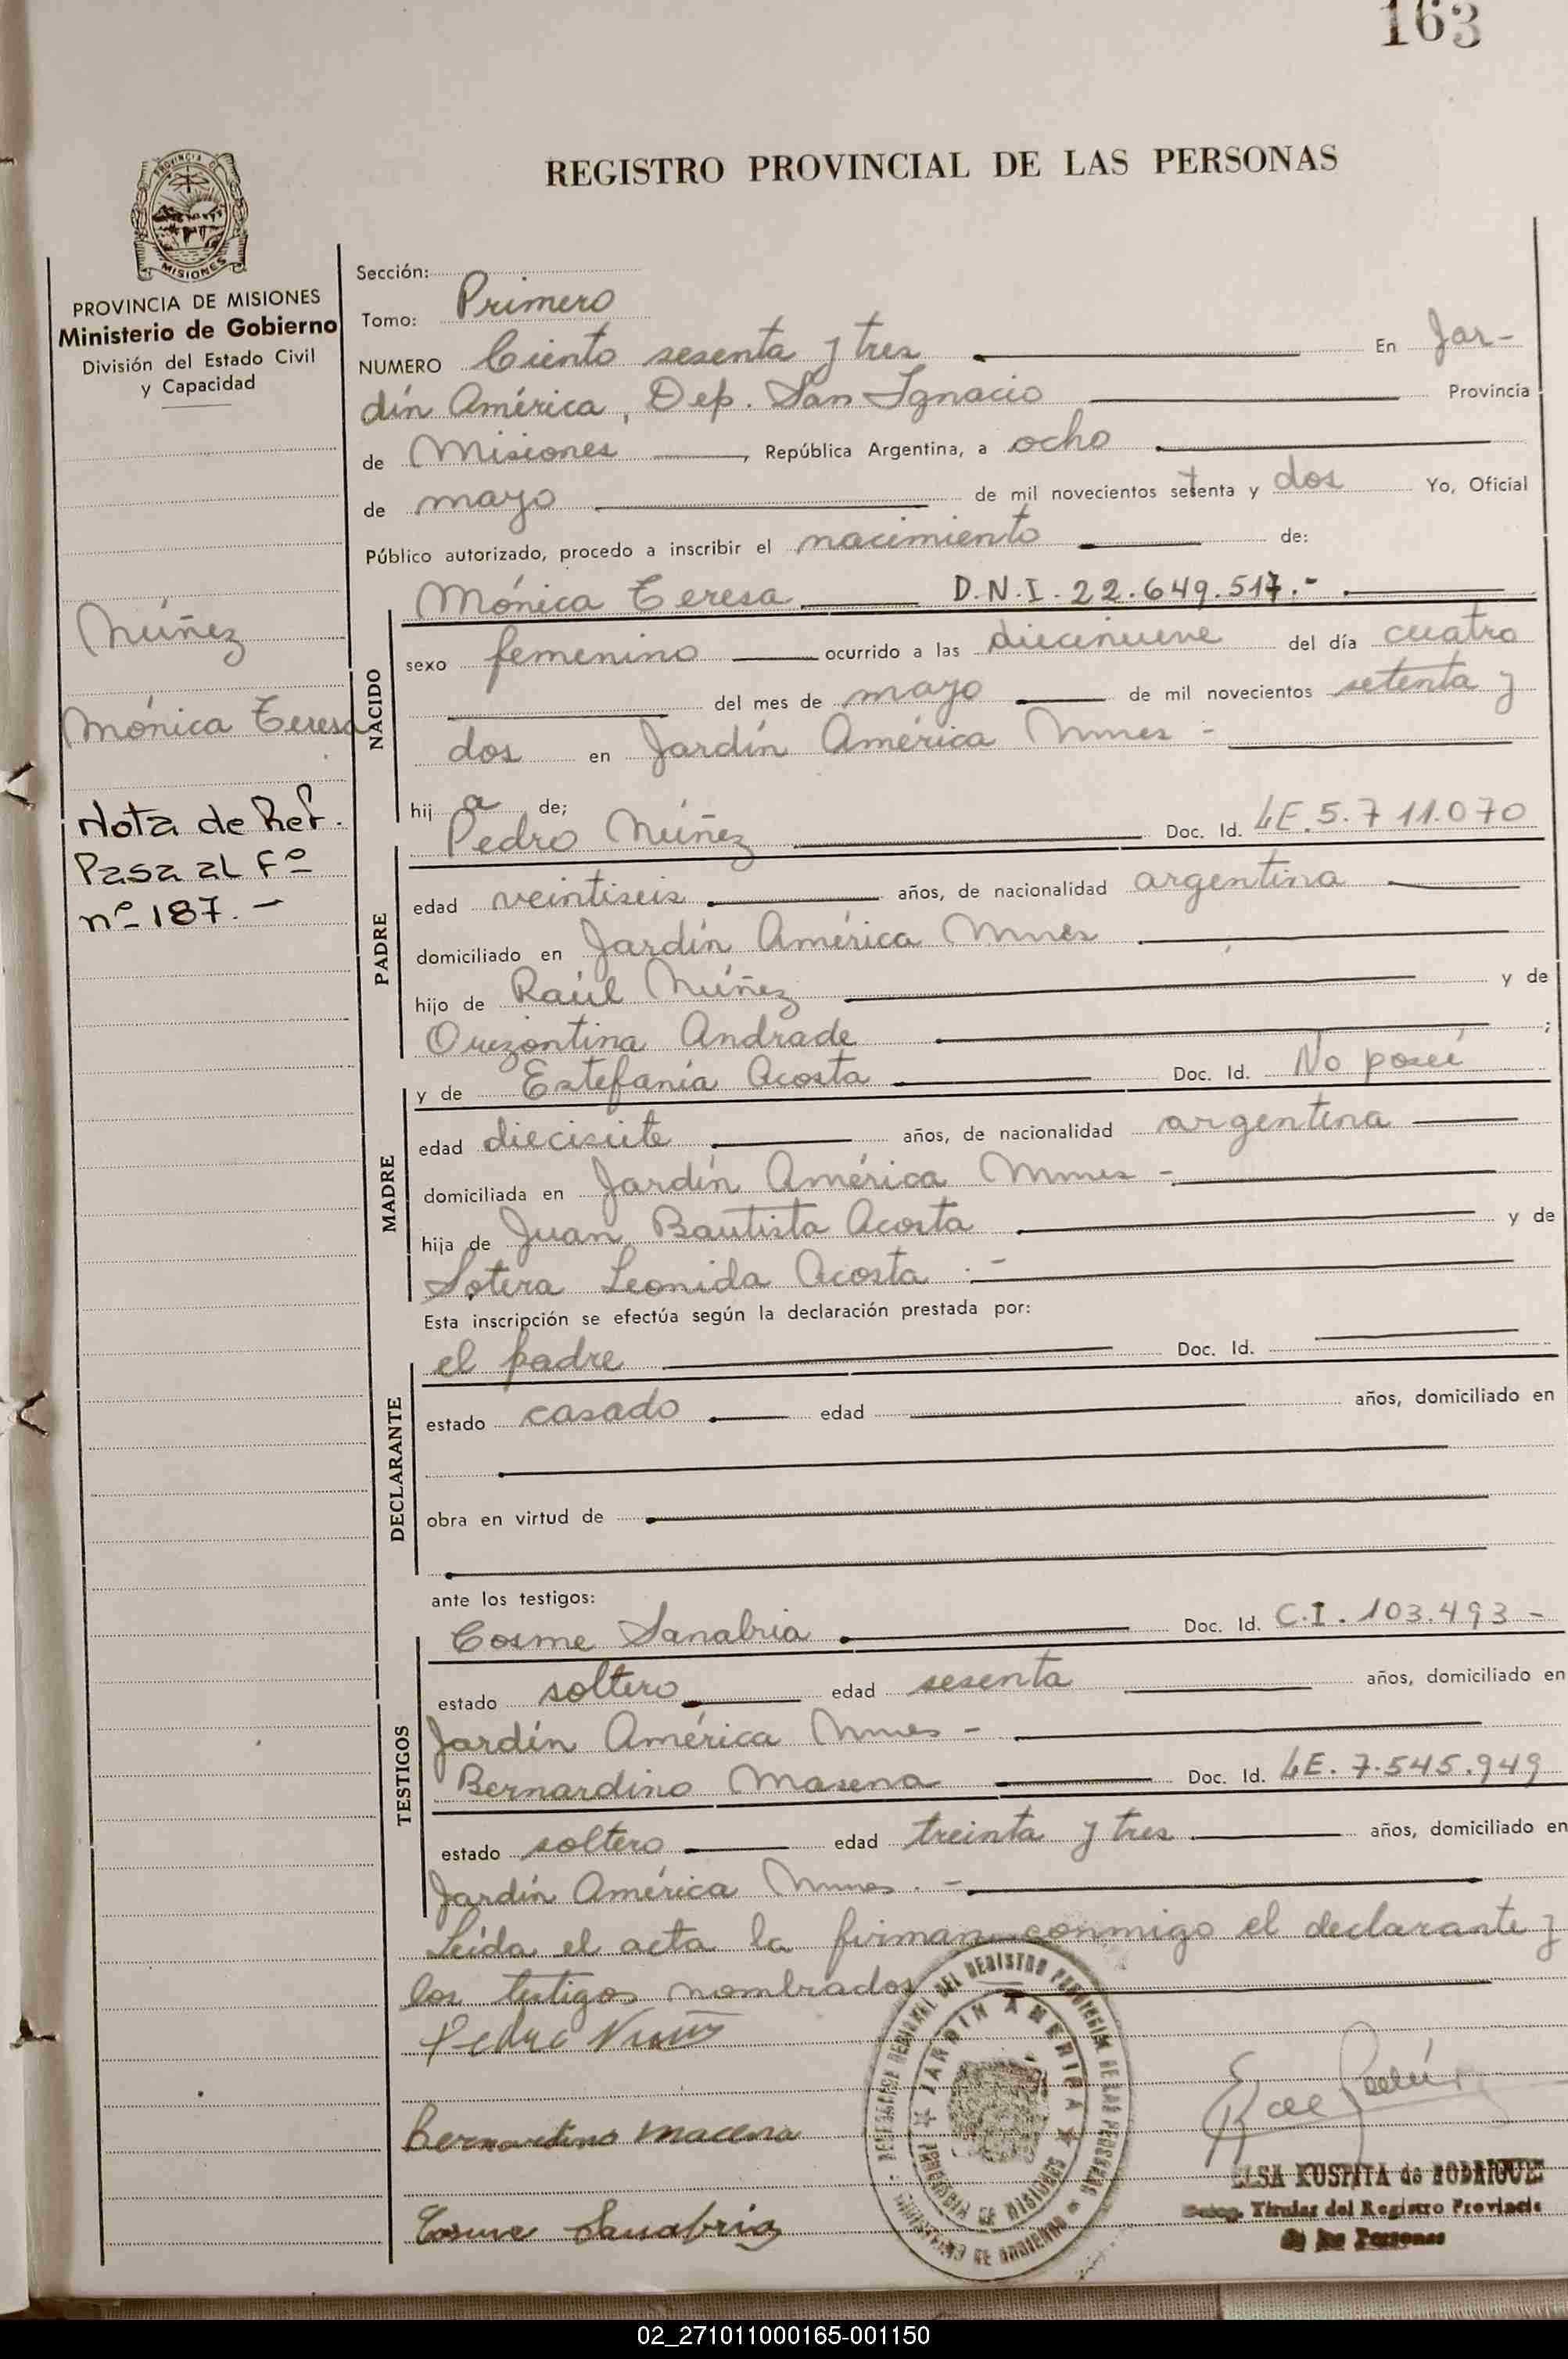 163
REGISTRO PROVINCIAL DE LAS PERSONAS
PROVINCIA DE MISIONES
Ministerio de Gobierno
División del Estado Civil
y Capacidad
Núñez
Mónica Teresa
Nota de Ref.
Pasa al Fº
nº 187.-
Sección:
Tomo: Primero
NUMERO Ciento sesenta y tres En Jar-
dín América, Dep. San Ignacio Provincia
de Misiones, República Argentina, a ocho
de mayo de mil novecientos setenta y dos Yo, Oficial
Público autorizado, procedo a inscribir el nacimiento de:
Mónica Teresa D.N.I. 22.649.517.-
NACIDO
sexo femenino ocurrido a las diecinueve del día cuatro
del mes de mayo de mil novecientos setenta y
dos en Jardín América Mnes -
hij a de;
Pedro Núñez Doc. Id. LE.5.711.070
PADRE
edad veintiseis años, de nacionalidad argentina
domiciliado en Jardín América Mnes
hijo de Raúl Núñez y de
Orizontina Andrade ;
y de Estefanía Acosta Doc. Id. No poseé
MADRE
edad diecisiete años, de nacionalidad argentina
domiciliada en Jardín América Mnes -
hija de Juan Bautista Acosta y de
Sotera Leonida Acosta .-
Esta inscripción se efectúa según la declaración prestada por:
el padre Doc. Id.
DECLARANTE
estado casado edad años, domiciliado en
obra en virtud de
ante los testigos:
Cosme Sanabria Doc. Id. C.I. 103.493 -
TESTIGOS
estado soltero edad sesenta años, domiciliado en
Jardín América Mnes -
Bernardino Masena Doc. Id. LE. 7.545.949
estado soltero edad treinta y tres años, domiciliado en
Jardín América Mnes. -
Leída el acta la firman conmigo el declarante y
los testigos nombrados
Pedro Nuñez
Bernardino Macena
Cosme Sanabria
JARDIN AMERICA
PROVINCIA DE MISIONES
ELSA KUSPITA de RODRIGUE
Deleg. Titular del Registro Provincia
de las Personas
02_271011000165-001150